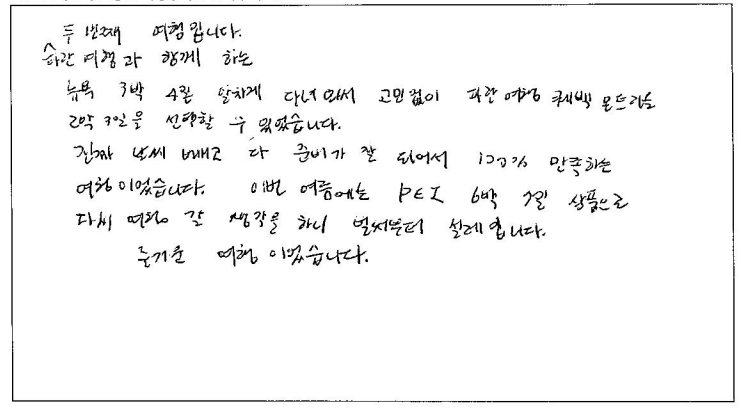 두 번째 여행입니다.
파란 여행과 함께 하는
뉴욕 3박 4일 알차게 다녀와서 고민없이 파란여행 퀘백 몬트리올
2박 3일을 선택할 수 있었습니다.
진짜 날씨 빼고 다 준비가 잘 되어서 100% 만족하는
여행이었습니다. 이번 여름에는 PEI 6박 7일 상품으로
다시 여행 갈 생각을 하니 벌써부터 설레입니다.
즐거운 여행이었습니다.